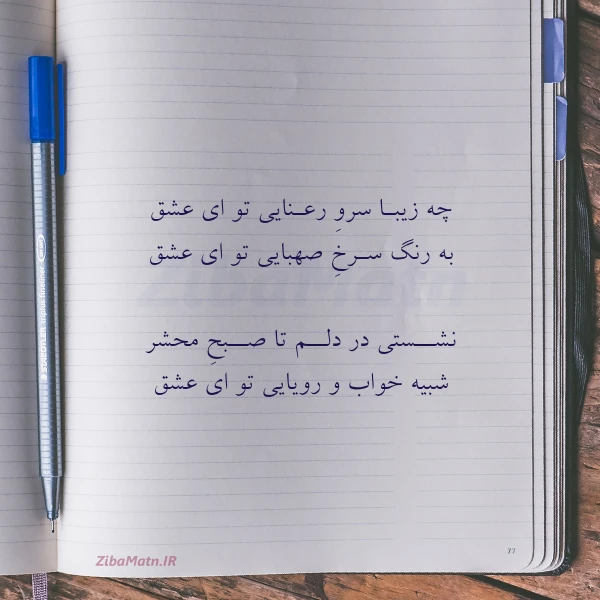 چه زیبا سروِ رعنایی تو ای عشق
به رنگ سرخِ صهبایی تو ای عشق
نشستی در دلم تا صبحِ محشر
شبیه خواب و رویایی تو ای عشق
ZibaMatn
77
ZibaMatn.IR